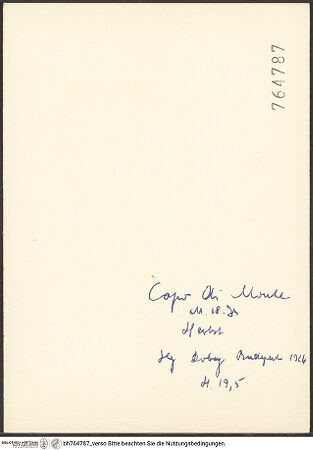 764787
Capo di Monte
M. 18. Jh
Herbst
Slg Budapest 1926
H. 19,5
bh764787_verso Bitte beachten Sie die Nutzungsbedingungen.